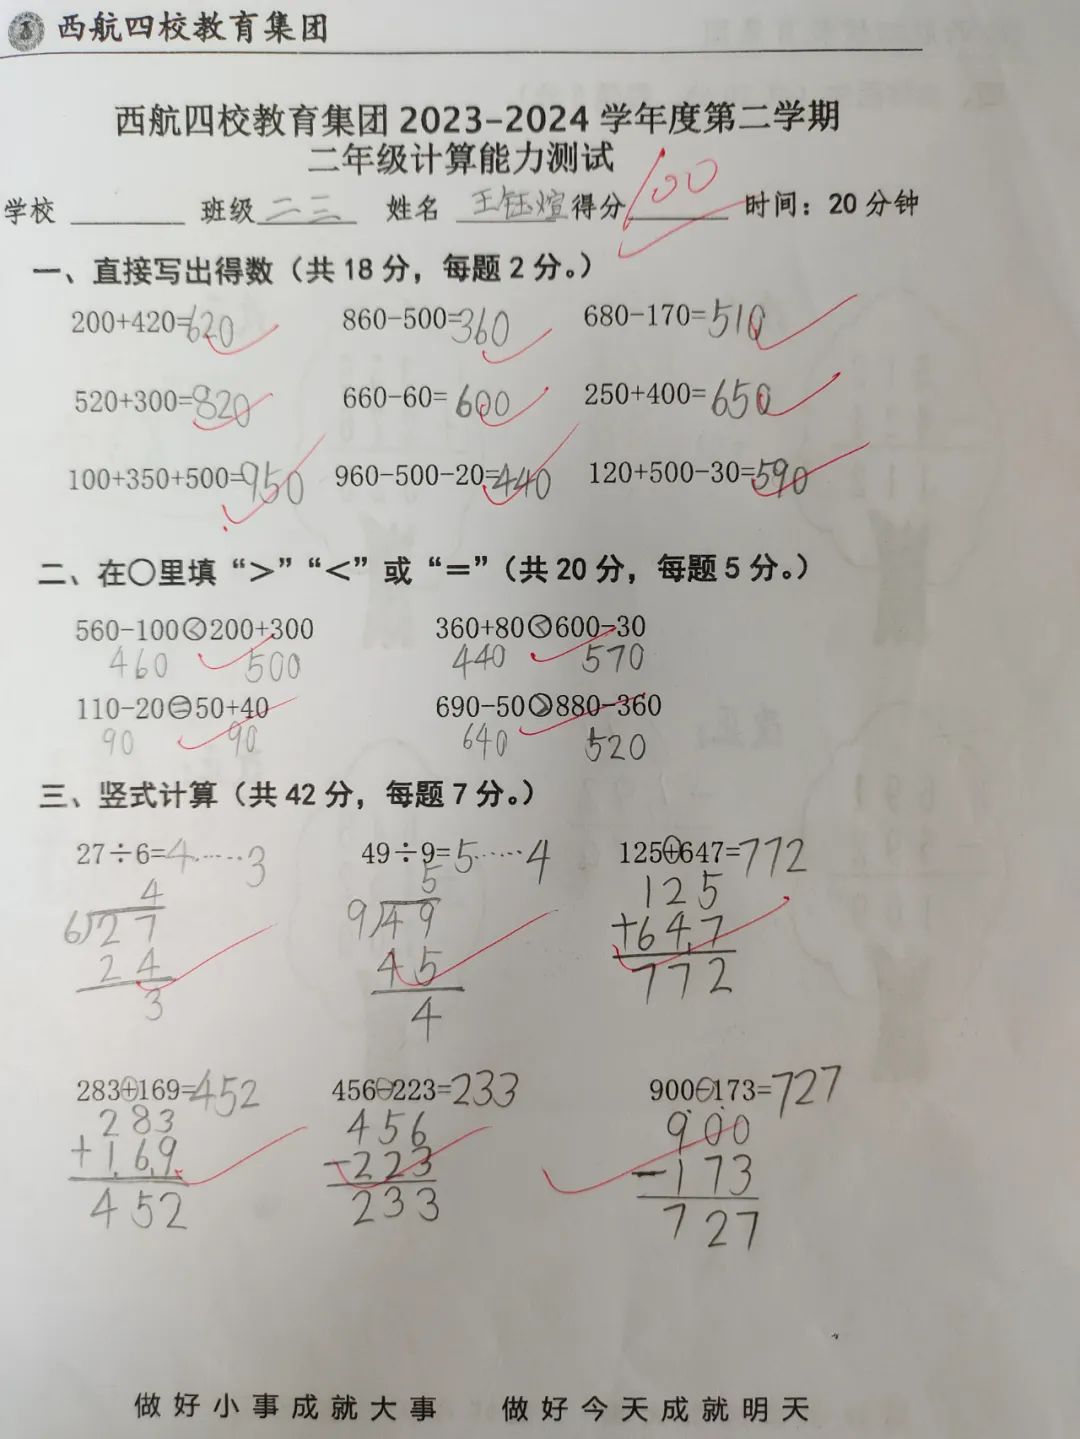 西航四校教育集团
西航四校教育集团 2023-2024 学年度第二学期
二年级计算能力测试
学校 ________ 班级 二三 姓名 王钰煊 得分 100 时间：20 分钟
一、直接写出得数（共 18 分，每题 2 分。）
200+420=620 860-500=360 680-170=510
520+300=820 660-60=600 250+400=650
100+350+500=950 960-500-20=440 120+500-30=590
二、在〇里填“>”“<”或“=”（共 20 分，每题 5 分。）
560-100<200+300 360+80<600-30
460 500 440 570
110-20=50+40 690-50>880-360
90 90 640 520
三、竖式计算（共 42 分，每题 7 分。）
27÷6=4……3 49÷9=5……4 125+647=772
4 5 125
6)27 9)49 +647
24 45 772
3 4
283+169=452 456-223=233 900-173=727
283 456 900
+169 -223 -173
452 233 727
做好小事成就大事 做好今天成就明天